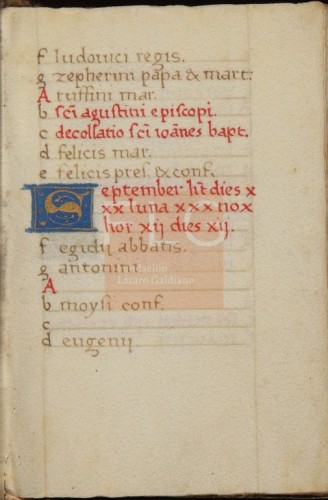 f ludovici regis.
g zepherini papa & mart.
A ruffini mar.
b sci agustini episcopi.
c decollatio sci ioānes bapt.
d felicis mar.
e felicis pres. & conf.
September h̄t dies x
xx luna xxx nox
hor xij dies xij.
f egidij abbatis.
g antonini
A
b moysi conf.
c
d eugenij
Fundación
Lázaro Galdiano